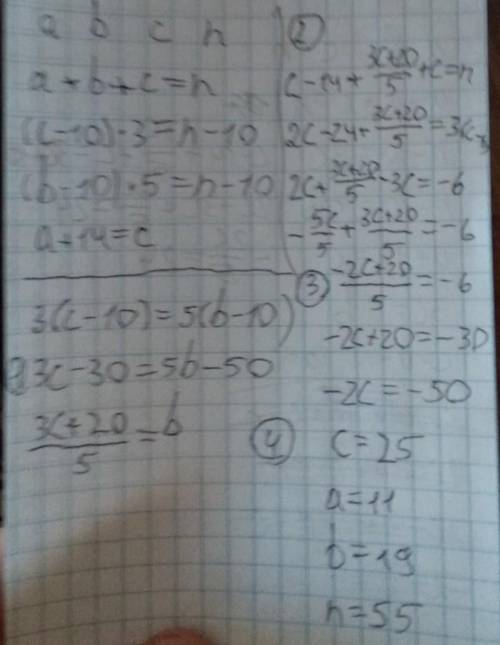 a b c n
a+b+c=n
(c-10)·3=n-10
(b-10)·5=n-10
a+14=c
3(c-10)=5(b-10)
3c-30=5b-50
(3c+20)/5=b
②
c-14+(3c+20)/5+c=n
2c-24+(3c+20)/5=3c-
2c+(3c+20)/5-3c=-6
-5c/5+(3c+20)/5=-6
③ (-2c+20)/5=-6
-2c+20=-30
-2c=-50
④ c=25
a=11
b=19
n=55